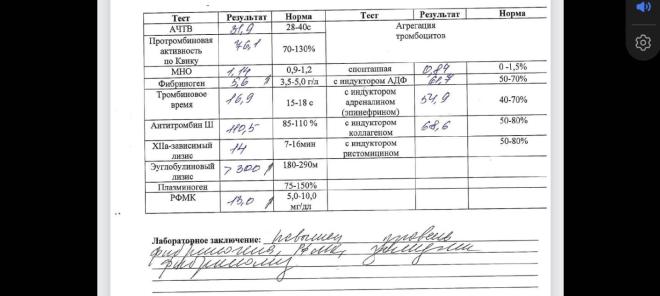 Тест Результат Норма Тест Результат Норма
АЧТВ 31,9 28-40с Агрегация тромбоцитов
Протромбиновая активность по Квику 76,1 70-130%
МНО 1,14 0,9-1,2 спонтанная 0,84 0 -1,5%
Фибриноген 5,6 3,5-5,0 г/л с индуктором АДФ 61,7 50-70%
Тромбиновое время 16,9 15-18 с с индуктором адреналином (эпинефрином) 54,9 40-70%
Антитромбин III 110,5 85-110 % с индуктором коллагеном 68,6 50-80%
XIIа-зависимый лизис 14 7-16мин с индуктором ристомицином 50-80%
Эуглобулиновый лизис >300 180-290м
Плазминоген 75-150%
РФМК 13,0 5,0-10,0 мг/дл
Лабораторное заключение: повышен уровень
фибриногена, РФМК,